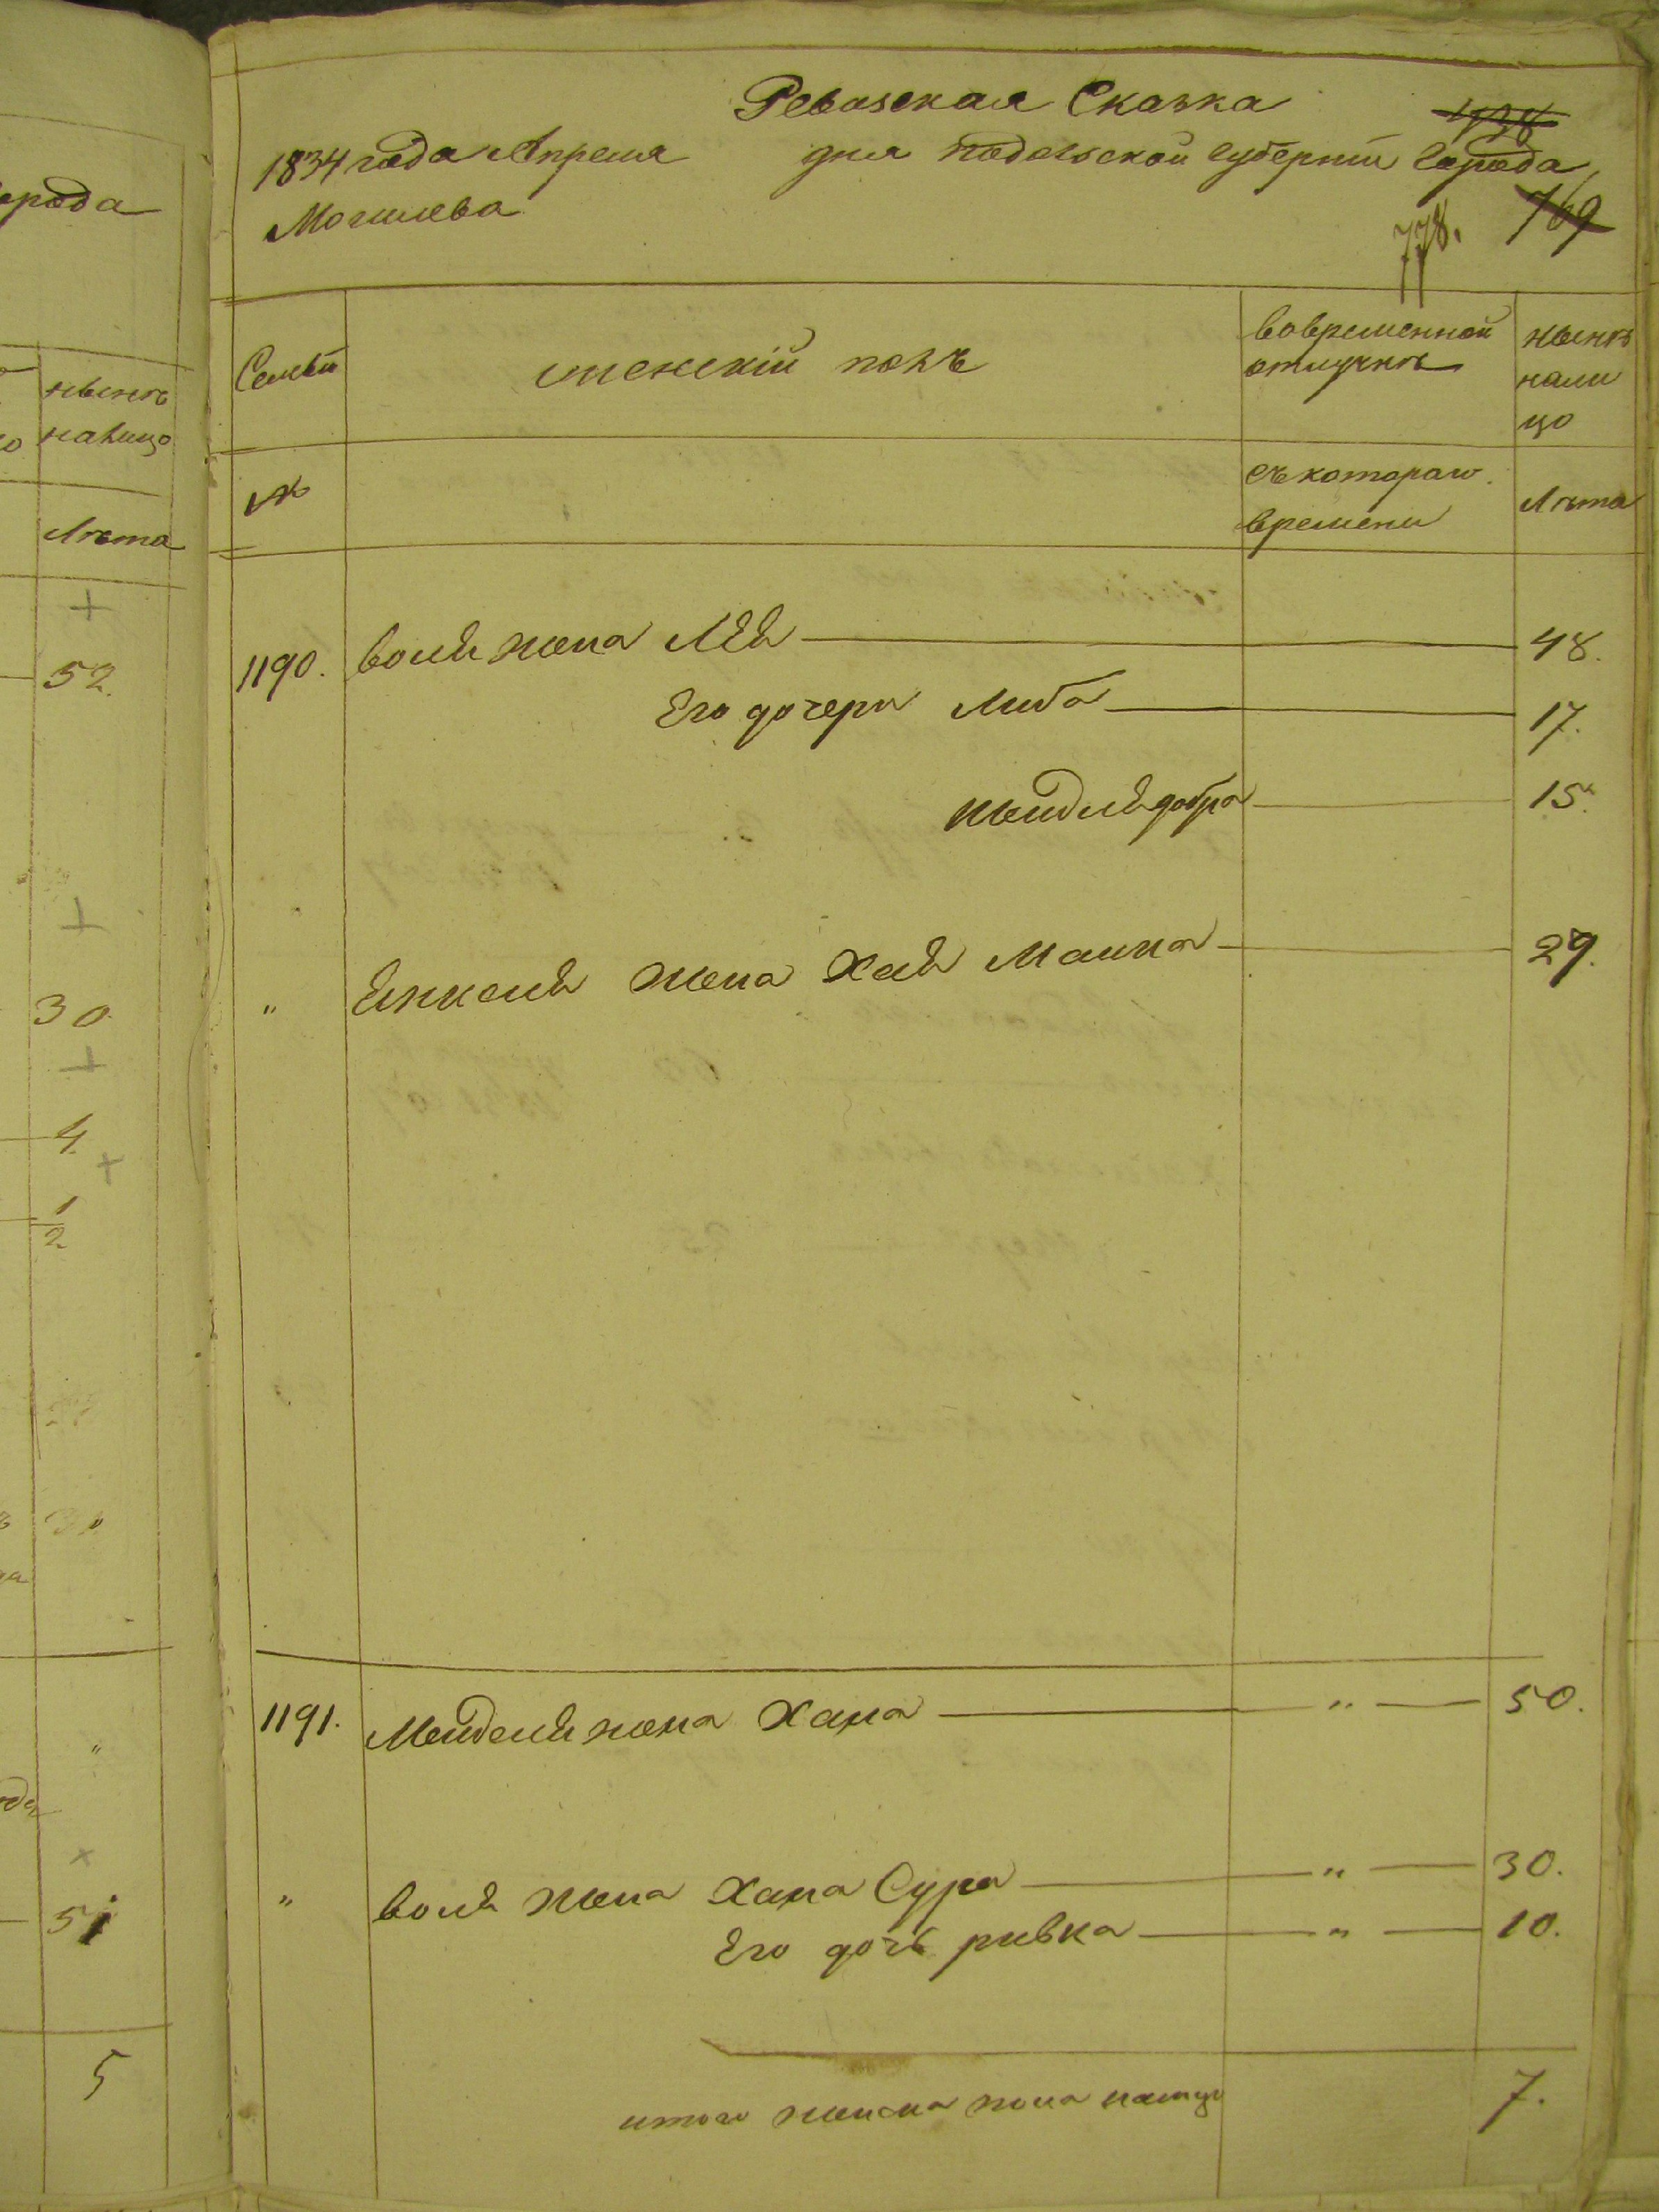 орода
нынѣ
налицо
Лѣта
52.
30
4
1/2
51
5
Ревизская Сказка
1834 года Апреля дня подольской губернiи города
Могилева
769
778.
Семьи
женскiй полъ
вовременной
отлучкѣ
нынѣ
нали
цо
№
съ котораго
времени
Лѣта
1190. волѣя жена Лея 48.
Его дочери Либа 17.
шейдля добра 15.
" Янкеля жена Хая Малка 29.
1191. Мейделя жена Хана " 50.
" воля жена Хана Сура " 30.
Его дочь ривка " 10.
итого женска пола налицо 7.